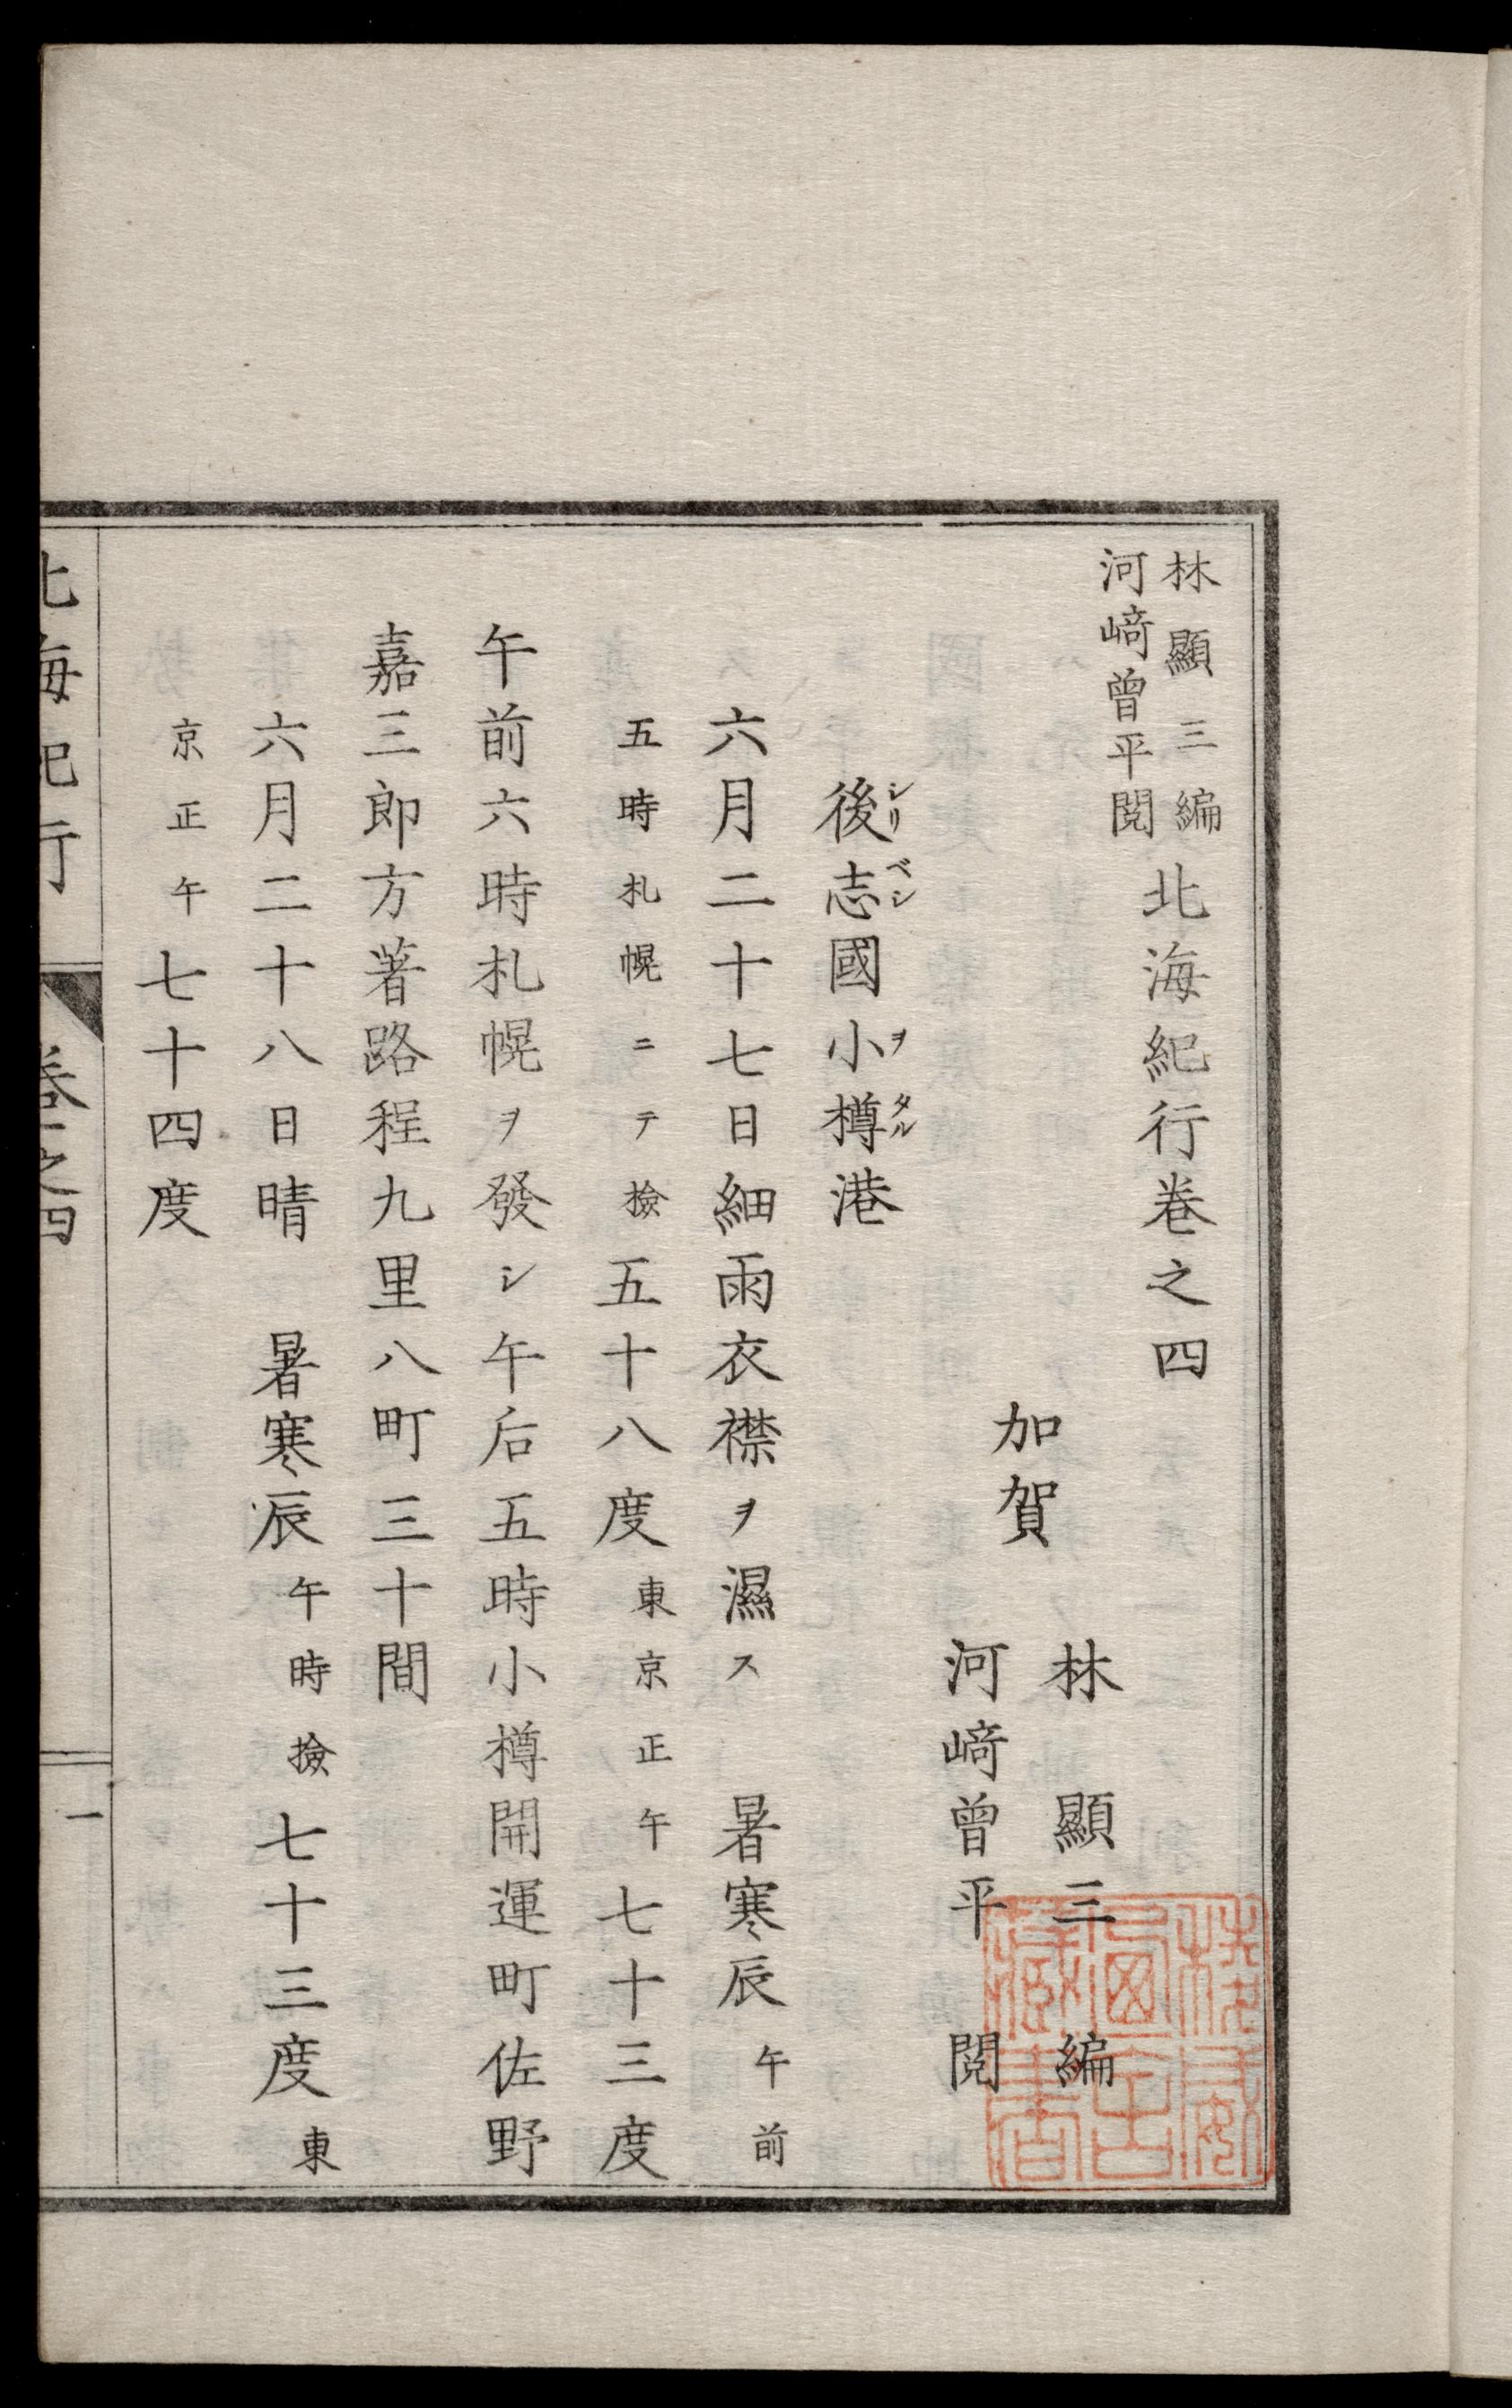 林顯三編
河﨑曾平閲
北海紀行卷之四
加賀
林顯三編
河﨑曾平閲
後志國小樽港
シリベシ ヲタル
六月二十七日細雨衣襟ヲ濕ス 暑寒辰午前
五時札幌ニテ撿五十八度東京正午七十三度
午前六時札幌ヲ發シ午后五時小樽開運町佐野
嘉三郎方著路程九里八町三十間
六月二十八日晴 暑寒辰午時撿七十三度東
京正午七十四度
北海紀行
卷之四
一